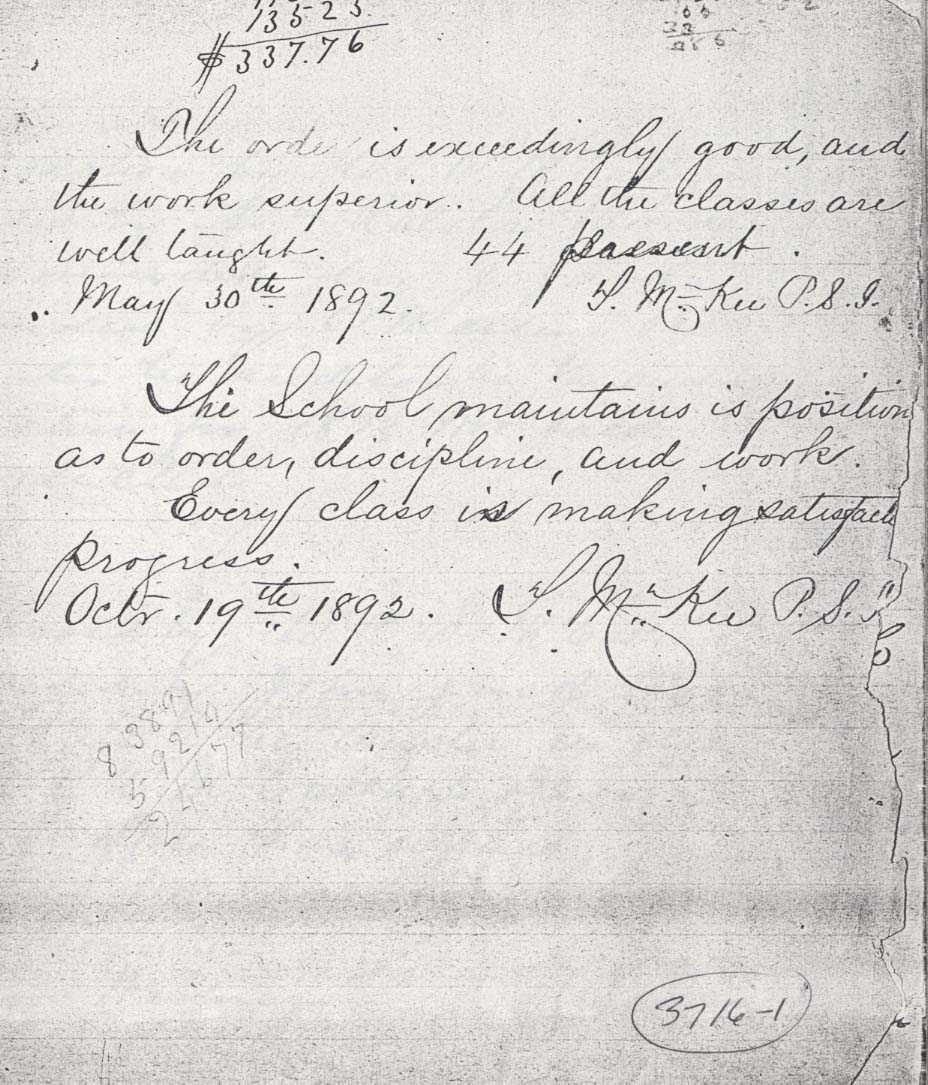 135 25
$337.76
The order is exceedingly good, and
the work superior. All the classes are
well taught. 44 present.
May 30th 1892. T. McKee P.S.I.
The School maintains is position
as to order, discipline, and work.
Every class is making satisfact
progress.
Octr. 19th 1892. T. McKee P.S.I
3716-1